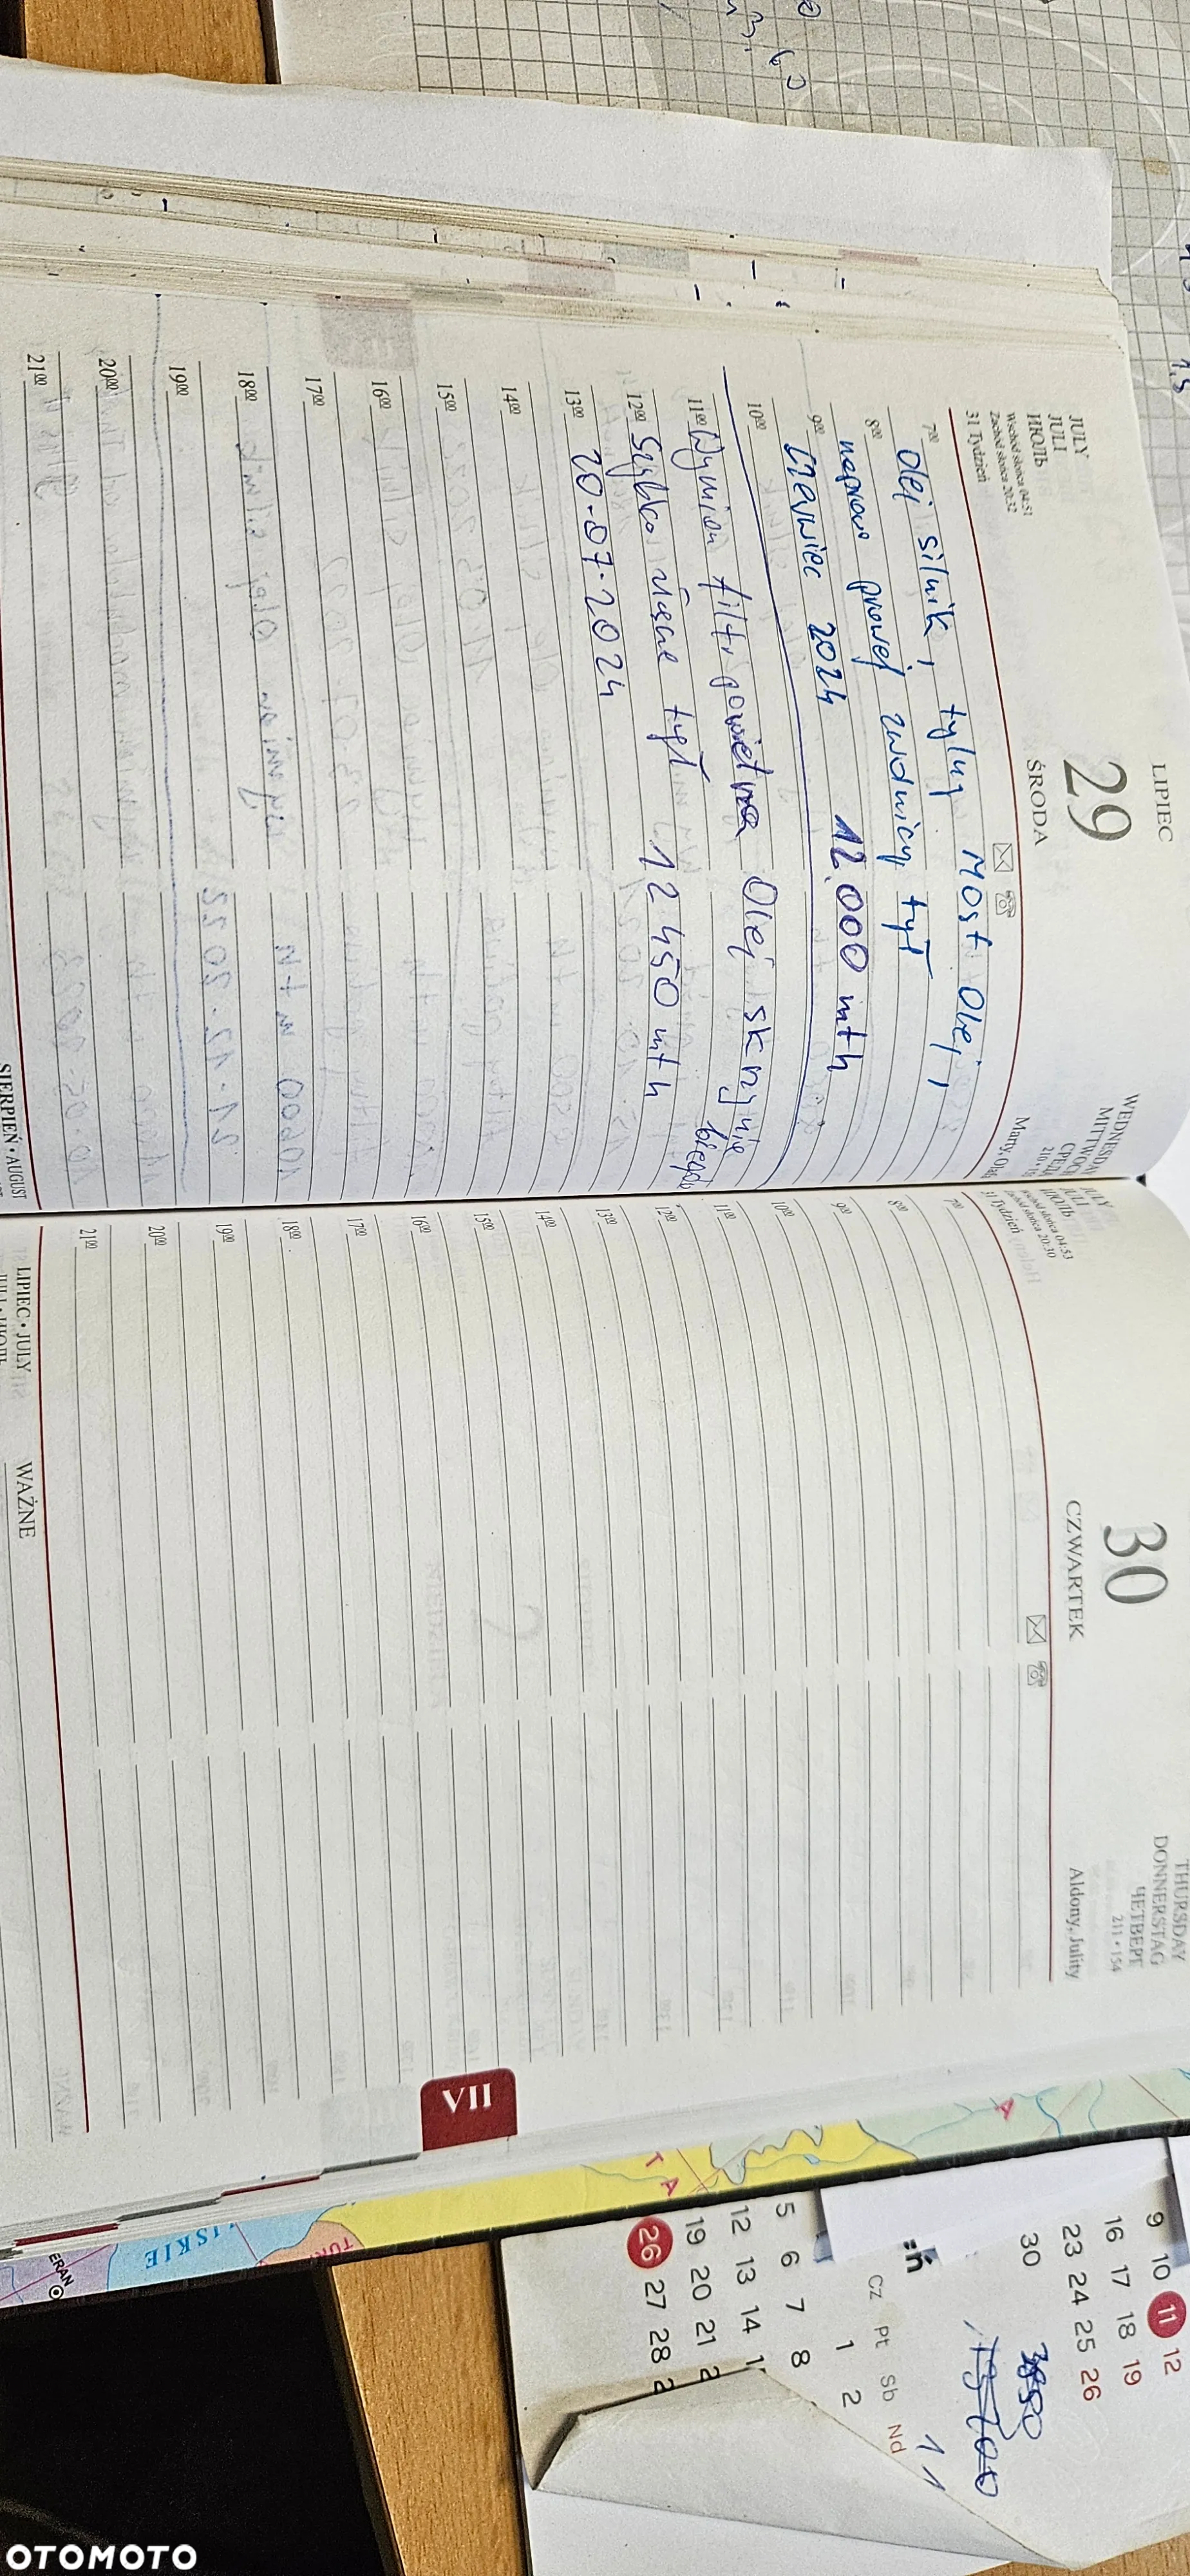 LIPIEC
29
ŚRODA
JULY
JULI
ИЮЛЬ
Wschód słońca 04:51
Zachód słońca 20:32
31 Tydzień
WEDNESDAY
MITTWOCH
Marty, Olafa
7⁰⁰ Olej silnik, tylny Most Olej,
8⁰⁰ naprawa prawej zwolnicy tył
9⁰⁰ Czerwiec 2024 12.000 mth
10⁰⁰
11⁰⁰ Wymian filt. powietrza Olej skrzynie biegów
12⁰⁰ Szyba tył 12 450 mth
13⁰⁰ 20.07.2024
14⁰⁰
15⁰⁰
16⁰⁰
17⁰⁰
18⁰⁰
19⁰⁰
20⁰⁰
21⁰⁰
SIERPIEŃ • AUGUST
30
CZWARTEK
JULI
ИЮЛЬ
31 Tydzień
THURSDAY
DONNERSTAG
ЧЕТВЕРГ
211 • 154
Aldony, Julity
7⁰⁰
8⁰⁰
9⁰⁰
10⁰⁰
11⁰⁰
12⁰⁰
13⁰⁰
14⁰⁰
15⁰⁰
16⁰⁰
17⁰⁰
18⁰⁰
19⁰⁰
20⁰⁰
21⁰⁰
LIPIEC • JULY
WAŻNE
VII
T A
A
TUR
ISKIE
ERAN
9 10 11 12
16 17 18 19
23 24 25 26
30
Cz Pt Sb Nd
1 2
5 6 7 8
12 13 14
19 20 21 2
26 27 28 2
OTOMOTO